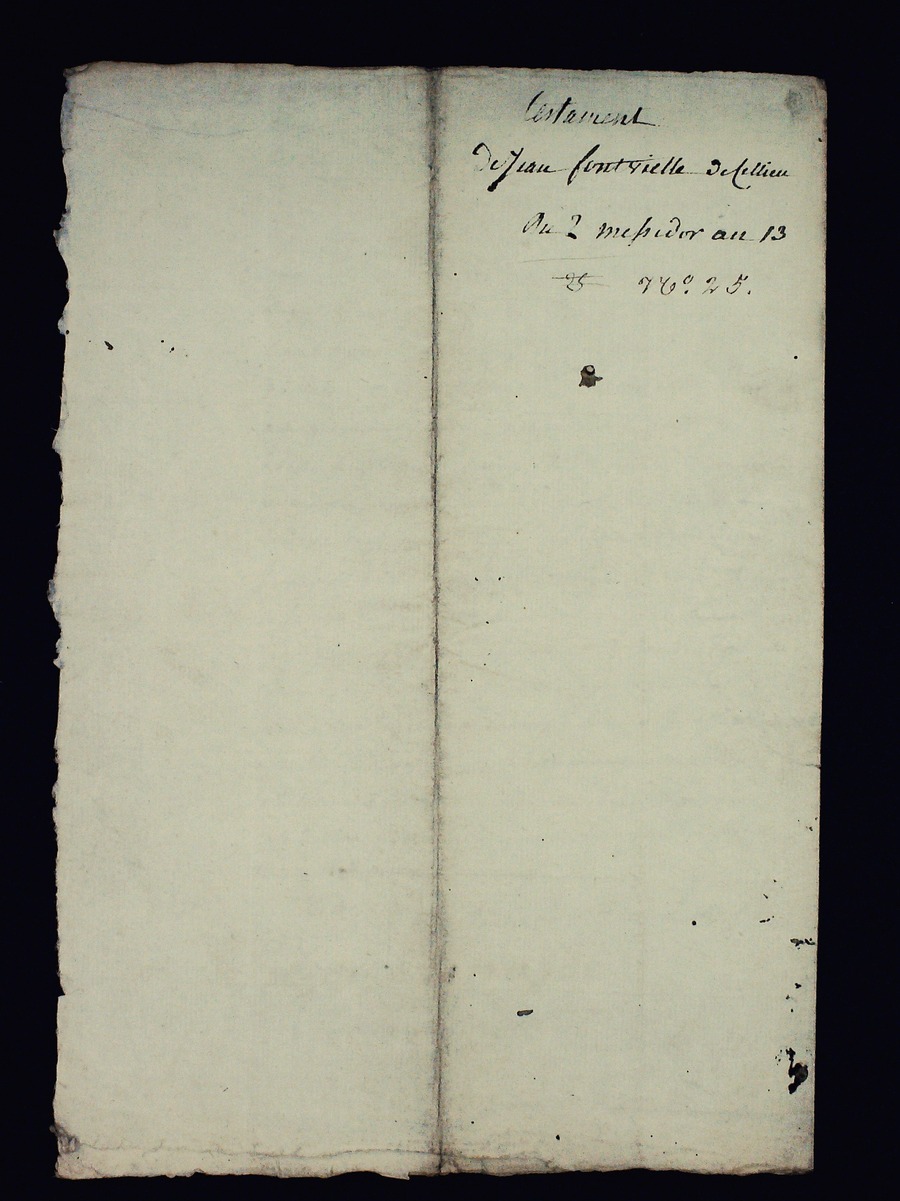 testament
De Jean fontvielle De Cellieu
Du 2 messidor an 13
N.º 25.